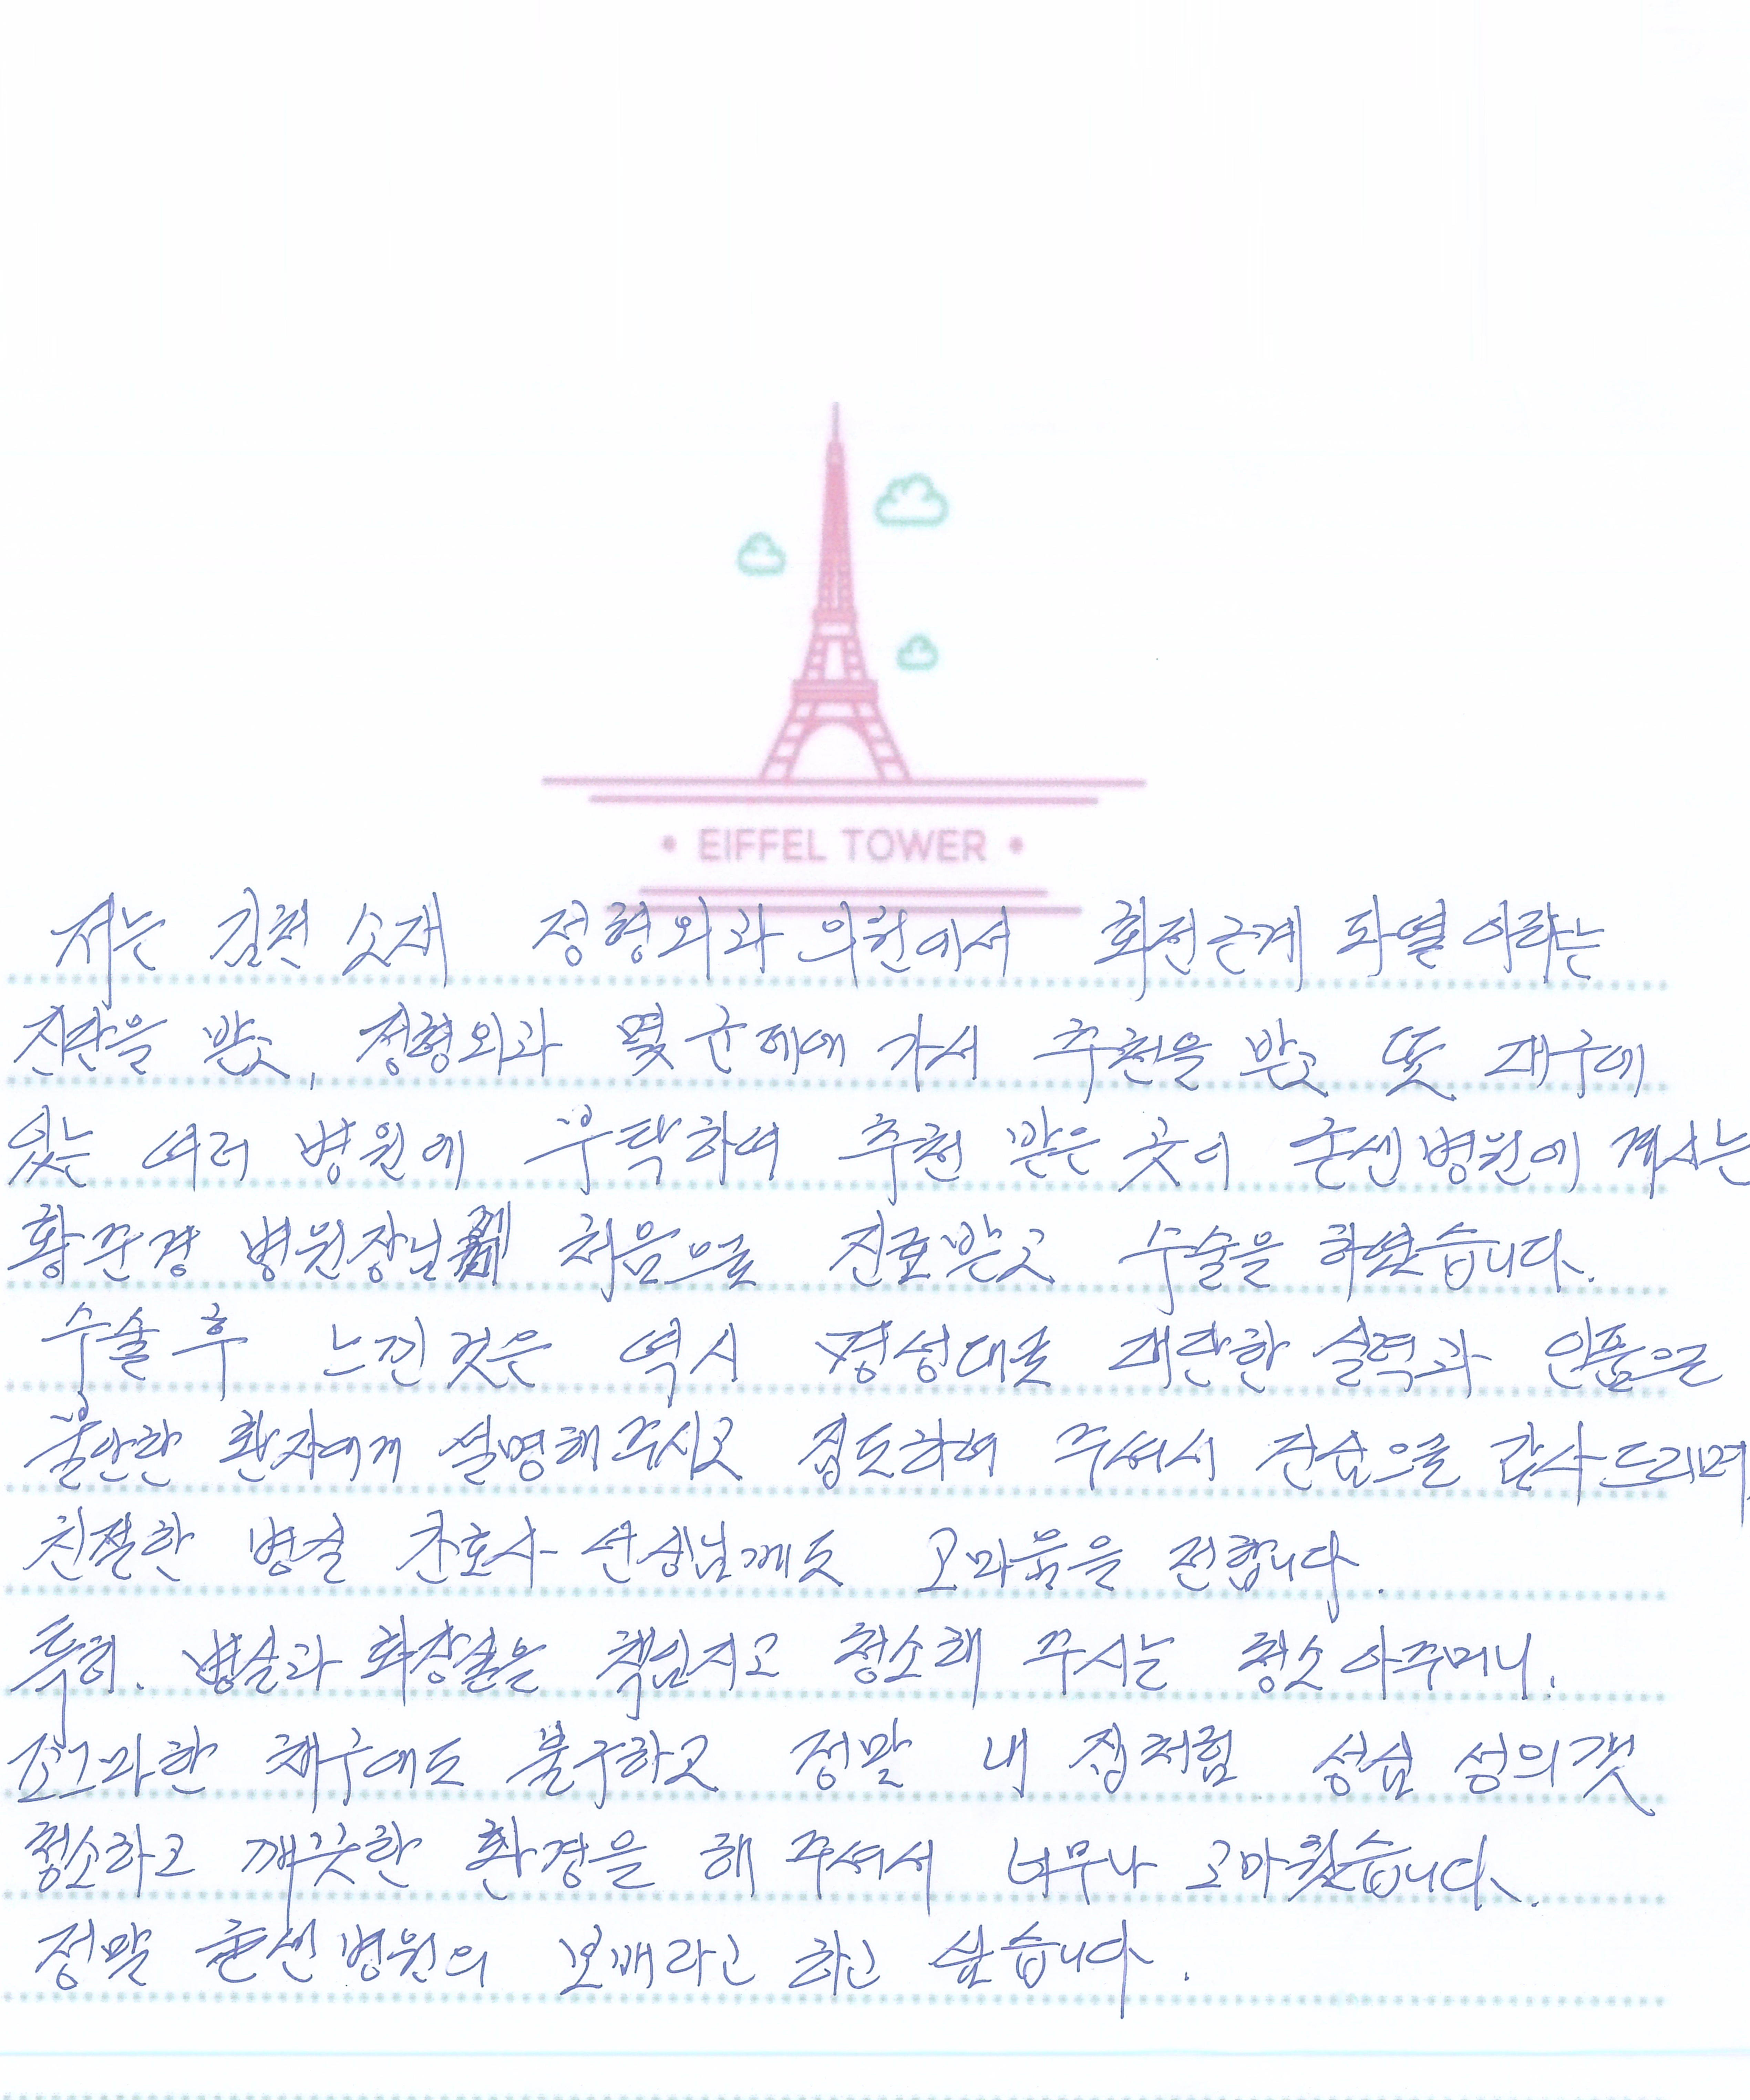 EIFFEL TOWER
저는 김천 소재 정형외과 의원에서 회전근개 파열이라는
진단을 받고, 정형외과 몇 군데에 가서 추천을 받고 또 대구에
있는 여러 병원에 부탁하여 추천 받은 곳이 굳센병원에 계시는
황준경 병원장님 처음으로 진료받고 수술을 하였습니다.
수술후 느낀것은 역시 명성대로 대단한 실력과 인품으로
불안한 환자에게 설명해주시고 집도하여 주셔서 진심으로 감사드리며
친절한 병실 간호사 선생님께도 고마움을 전합니다.
특히. 병실과 화장실을 책임지고 청소해 주시는 청소 아주머니.
조그마한 체구에도 불구하고 정말 내 집처럼 성심 성의껏
청소하고 깨끗한 환경을 해 주셔서 너무나 고마웠습니다.
정말 굳센병원의 보배라고 하고 싶습니다.